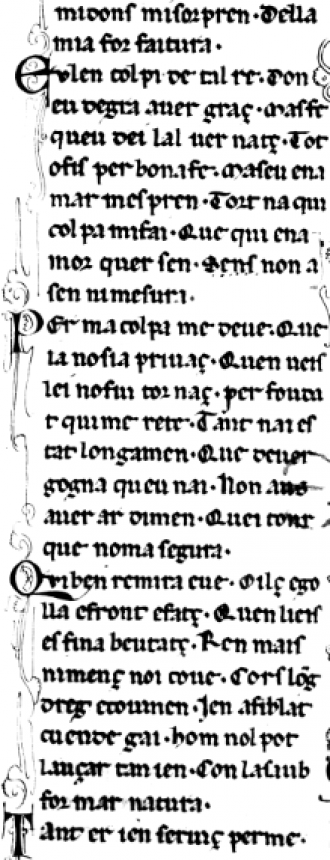 midons misorpren. Della
mia for faitura.
Eulen colpi de tal re. Don
eu degra auer graç. Mas fe
queu dei lal uer natç. Tot
ofis per bona fe. Maseu ena
mar mespren. Tort na qui
colpa mi fai. Que qui ena
mor quer sen. Sens non a
sen ni mesura.
PEr ma colpa me deue. Que
ia nosia priuaç. Quen ueis
lei nofui tornaç. per foudat
qui me rete. Tant nai es
tat longamen. Que deuer
gogna queu nai. Non aus
auer ardimen. Quei tont
que noma segura.
QViben remira eue. Oilç ego
lla efront efatç. Quen lieis
es fina beutatç. Ren mais
nimenç noi coue. Cors lõg
dreg ecouinen. Ien afiblat
cuende gai. hom nol pot
lauçar tan ien. Con lasaub
formar natura.
TAnt er ien seruiç per me.